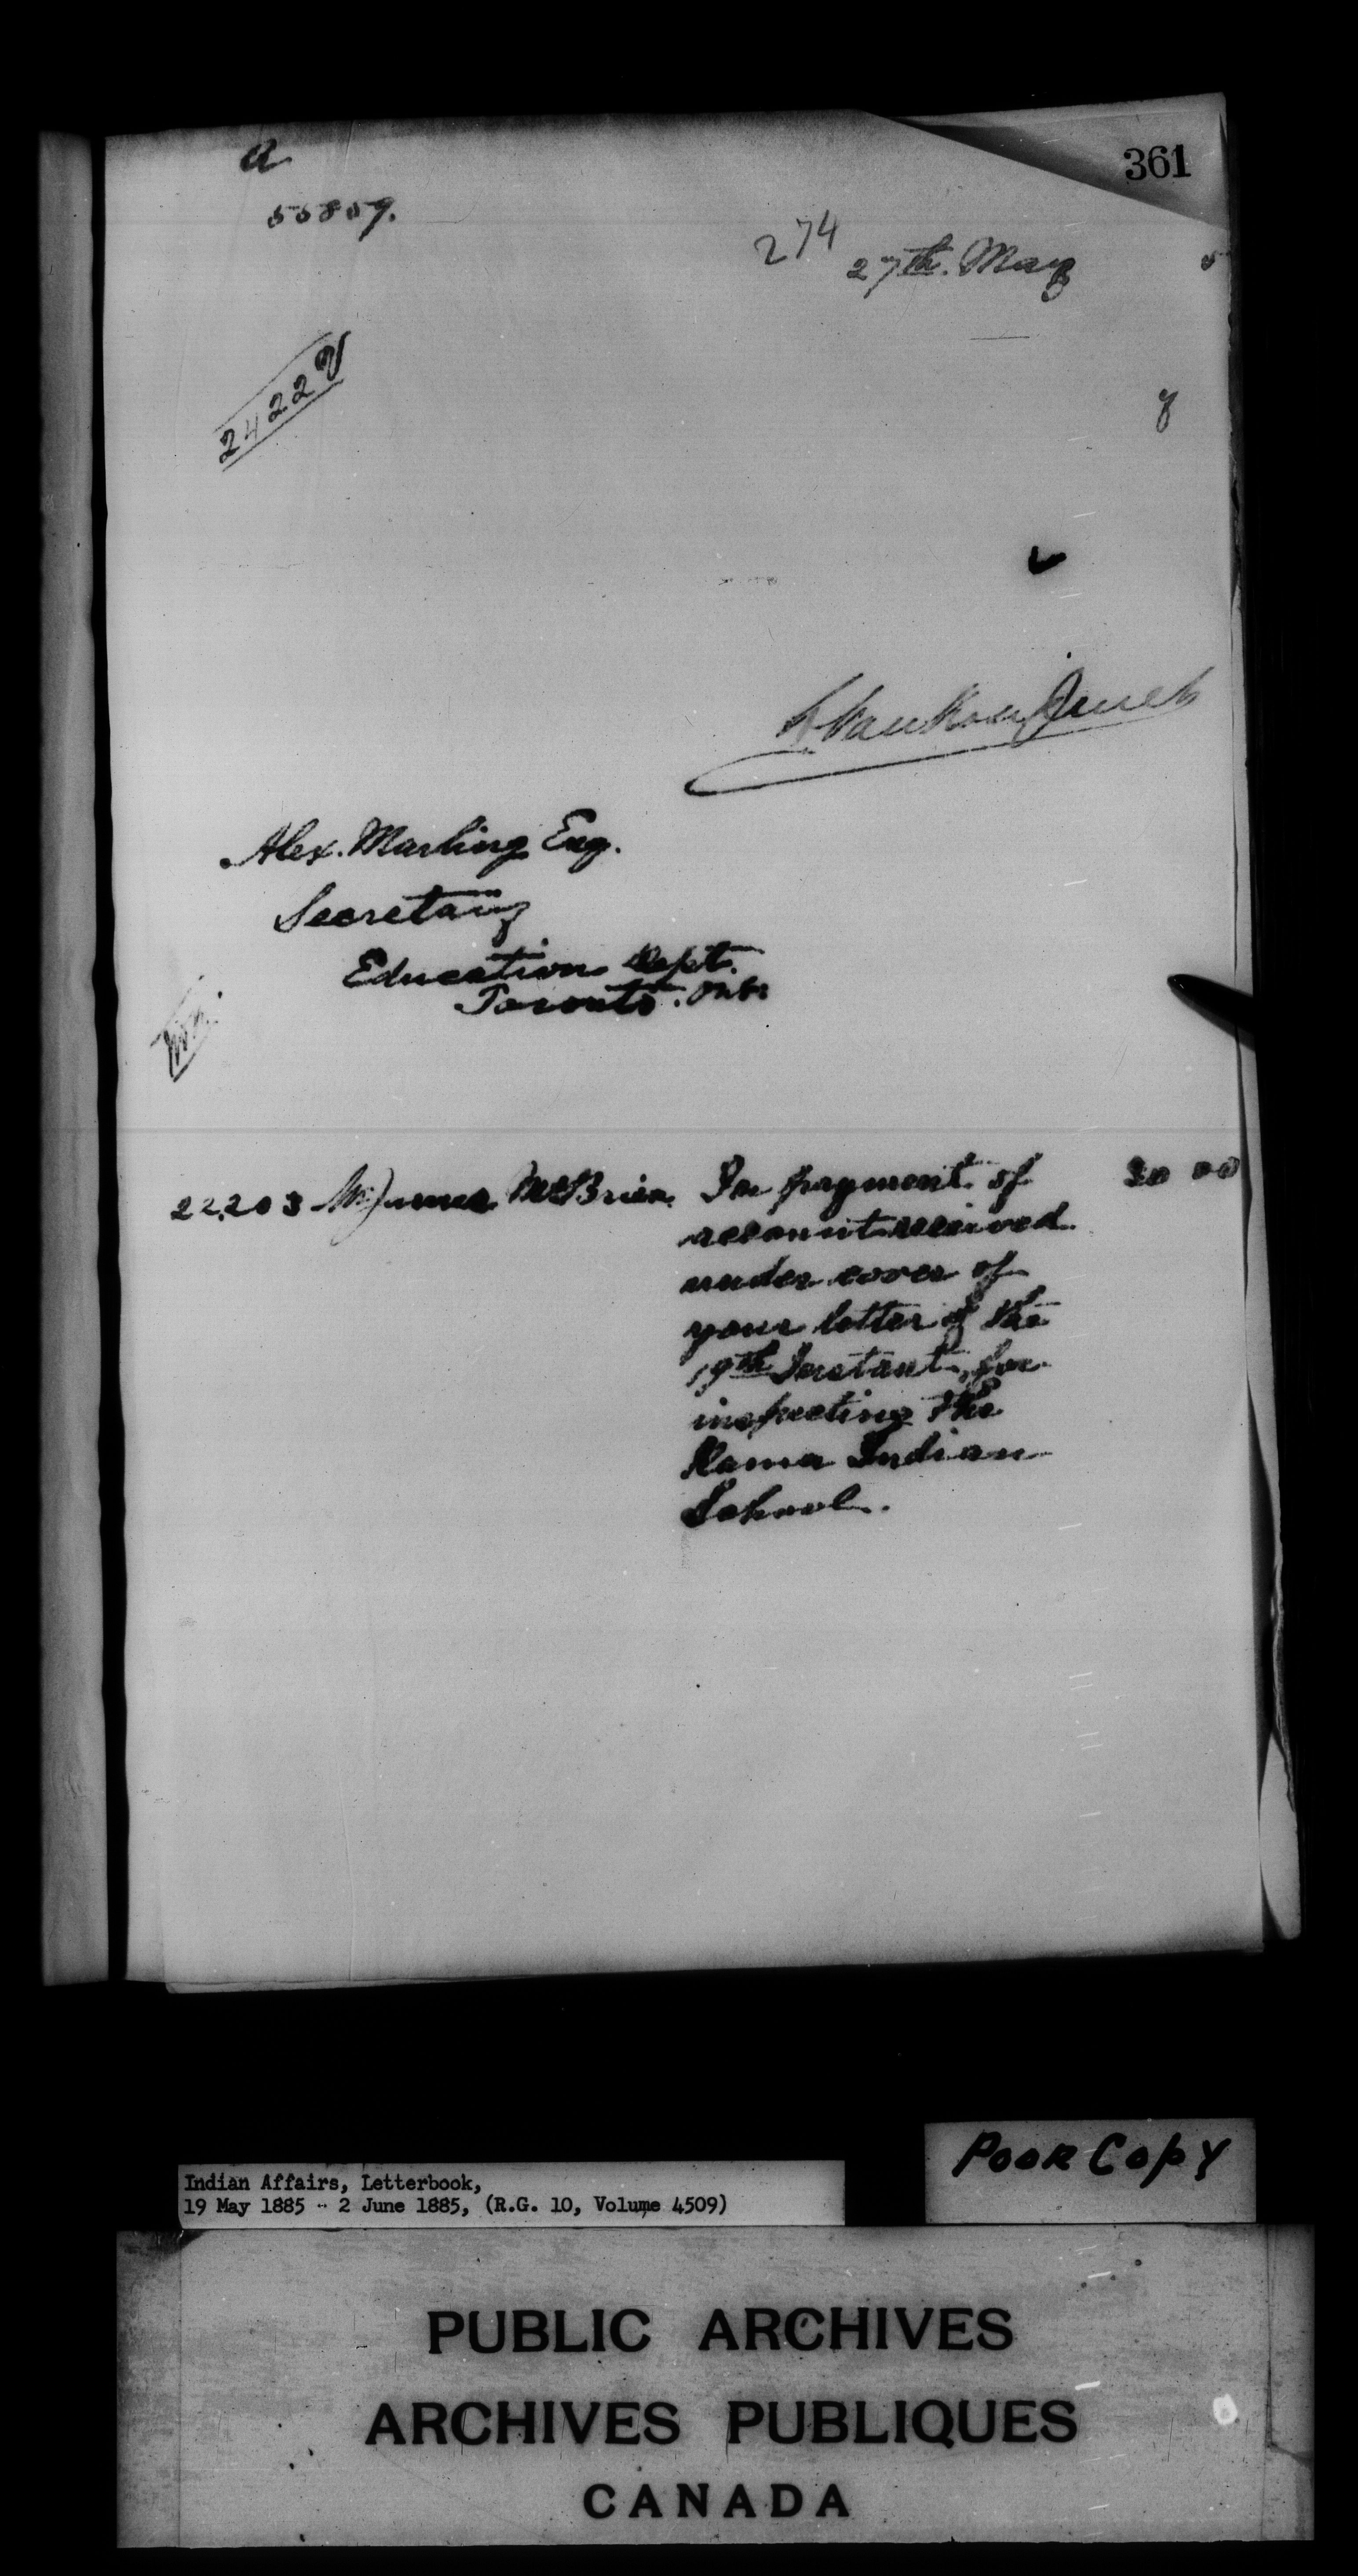 361
a
55859.
274
27th. May 5
2422
L VanKoughnet
Alex. Marling Esq.
Secretary
Education Dept.
Toronto. Ont.
22,203 Mr James McBrien. In payment of 00
account received
under cover of
your letter of the
19th Instant, for
inspecting the
Rama Indian
School.
Poor Copy
Indian Affairs, Letterbook,
19 May 1885 - 2 June 1885, (R.G. 10, Volume 4509)
PUBLIC ARCHIVES
ARCHIVES PUBLIQUES
CANADA